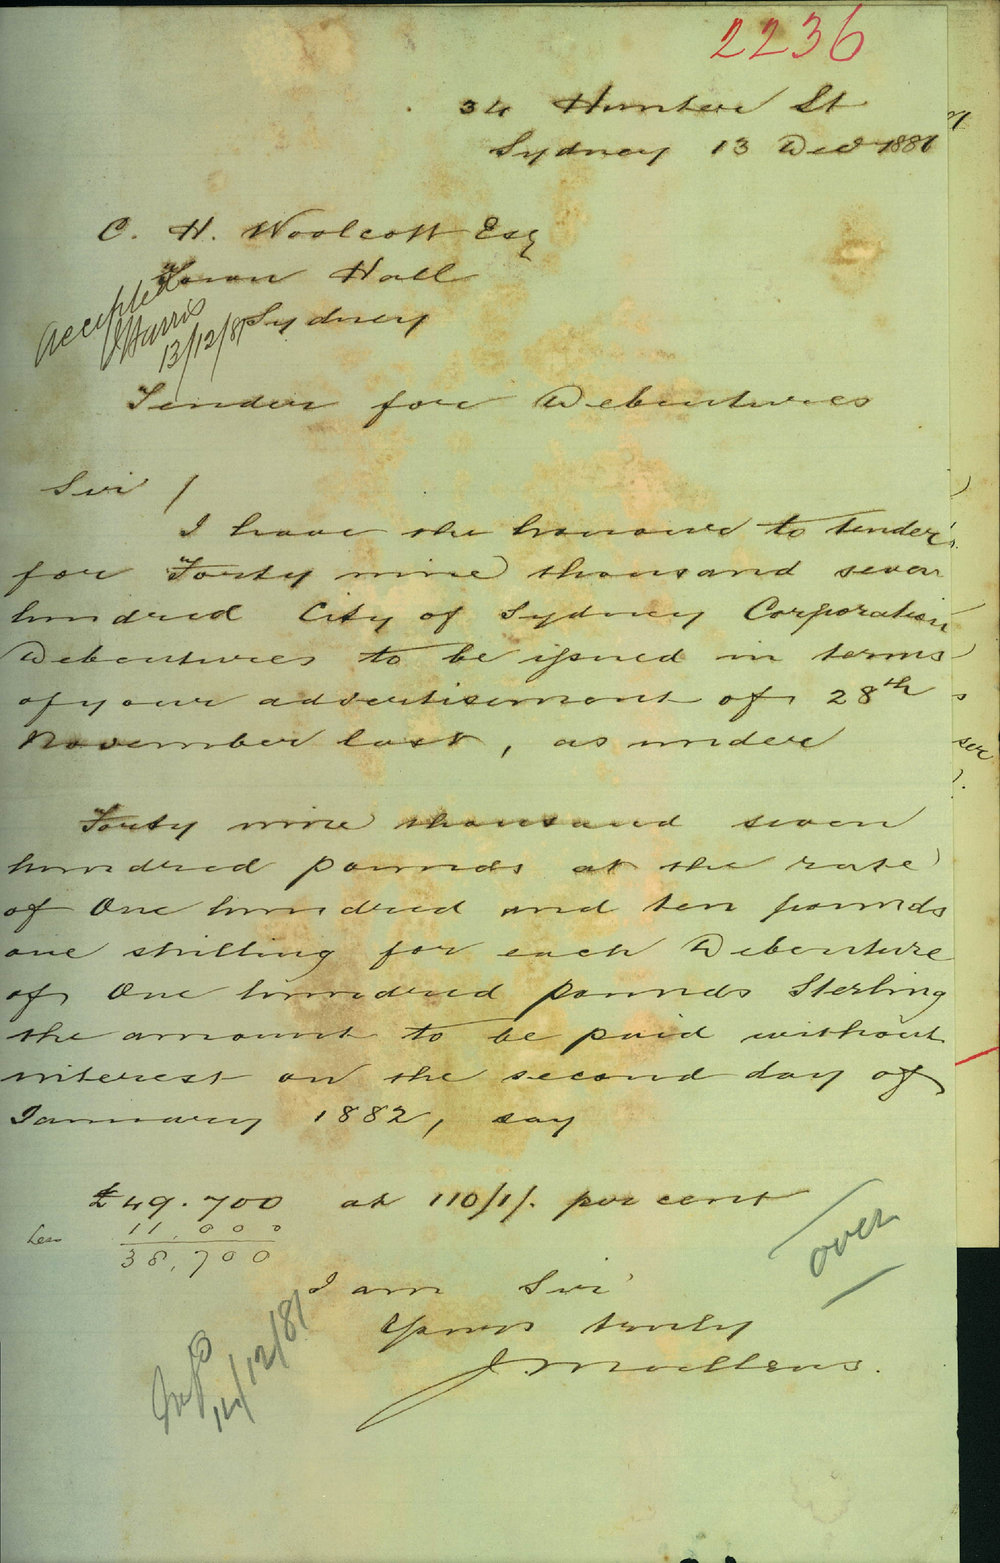 2236
34 Hunter St
Sydney 13 Decr 1881
C. H. Woolcott Esq
Town Hall
Sydney
Accepted
J Harris
13/12/81
Tender for Debentures
Sir /
I have the honour to tender
for Forty nine thousand seven
hundred City of Sydney Corporation
Debentures to be issued in terms
of your advertisement of 28th
November last, as under
Forty nine thousand seven
hundred pounds at the rate
of One hundred and ten pounds
one shilling for each Debenture
of One hundred pounds Sterling
the amount to be paid without
interest on the second day of
January 1882, say
£49.700 at 110/1/. per cent
Less 11.000
38,700
over
I am Sir
Yours truly
J. Mullens.
14/12/81